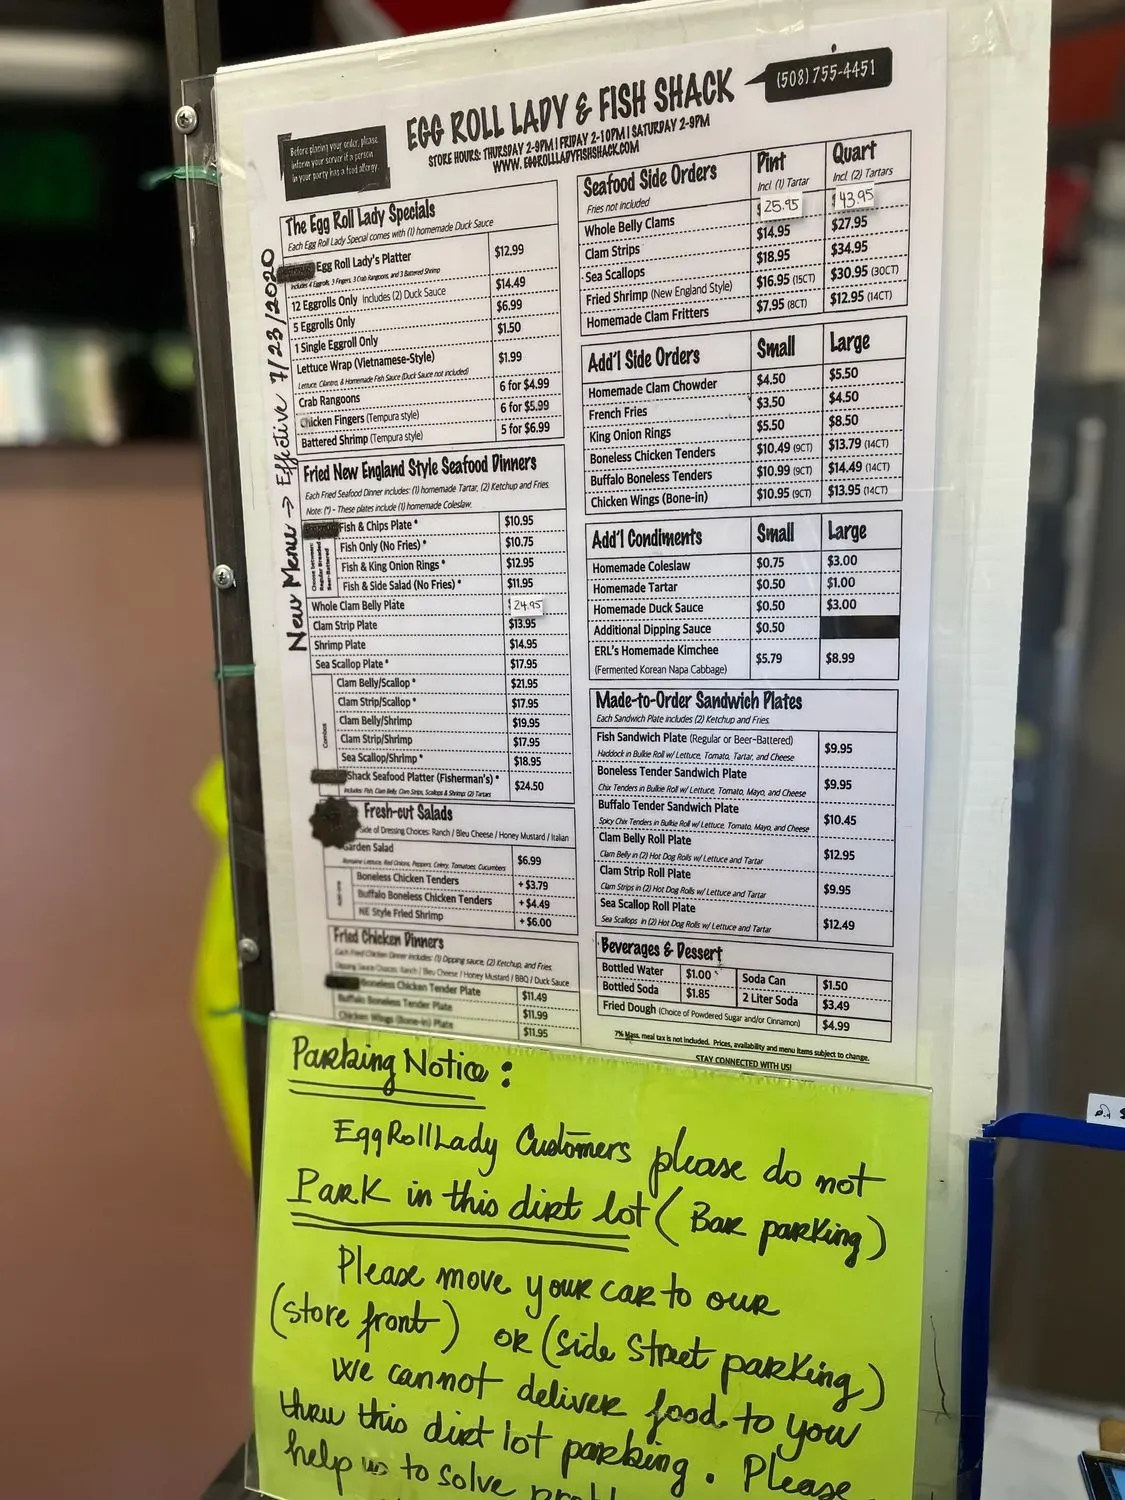 EGG ROLL LADY & FISH SHACK
(508) 755-4451
STORE HOURS: THURSDAY 2-9PM | FRIDAY 2-10PM | SATURDAY 2-9PM
WWW.EGGROLLLADYFISHSHACK.COM
Before placing your order, please
inform your server if a person
in your party has a food allergy.
New Menu → Effective 7/23/2020
The Egg Roll Lady Specials
Each Egg Roll Lady Special comes with (1) homemade Duck Sauce
Egg Roll Lady's Platter $12.99
Includes 4 Eggrolls, 3 Fingers, 3 Crab Rangoons, and 3 Battered Shrimp
12 Eggrolls Only Includes (2) Duck Sauce $14.49
5 Eggrolls Only $6.99
1 Single Eggroll Only $1.50
Lettuce Wrap (Vietnamese-Style) $1.99
Lettuce, Cilantro, & Homemade Fish Sauce (Duck Sauce not included)
Crab Rangoons 6 for $4.99
Chicken Fingers (Tempura style) 6 for $5.99
Battered Shrimp (Tempura style) 5 for $6.99
Fried New England Style Seafood Dinners
Each Fried Seafood Dinner includes: (1) homemade Tartar, (2) Ketchup and Fries.
Note: (*) - These plates include (1) homemade Coleslaw.
Fish & Chips Plate * $10.95
Choose between:
Regular Breaded
Beer-Battered
Fish Only (No Fries) * $10.75
Fish & King Onion Rings * $12.95
Fish & Side Salad (No Fries) * $11.95
Whole Clam Belly Plate 24.95
Clam Strip Plate $13.95
Shrimp Plate $14.95
Sea Scallop Plate * $17.95
Combos
Clam Belly/Scallop * $21.95
Clam Strip/Scallop * $17.95
Clam Belly/Shrimp $19.95
Clam Strip/Shrimp $17.95
Sea Scallop/Shrimp * $18.95
Shack Seafood Platter (Fisherman's) * $24.50
Includes: Fish, Clam Belly, Clam Strips, Scallops & Shrimp; (2) Tartars
Fresh-cut Salads
Side of Dressing Choices: Ranch / Bleu Cheese / Honey Mustard / Italian
Garden Salad $6.99
Romaine Lettuce, Red Onions, Peppers, Celery, Tomatoes, Cucumbers
Boneless Chicken Tenders + $3.79
Buffalo Boneless Chicken Tenders + $4.49
NE Style Fried Shrimp + $6.00
Fried Chicken Dinners
Each Fried Chicken Dinner includes: (1) Dipping sauce, (2) Ketchup, and Fries.
Dipping Sauce Choices: Ranch / Bleu Cheese / Honey Mustard / BBQ / Duck Sauce
Boneless Chicken Tender Plate $11.49
Buffalo Boneless Tender Plate $11.99
Chicken Wings (Bone-in) Plate $11.95
Seafood Side Orders Pint Quart
Fries not included Incl. (1) Tartar Incl. (2) Tartars
Whole Belly Clams $ 25.95 $ 43.95
Clam Strips $14.95 $27.95
Sea Scallops $18.95 $34.95
Fried Shrimp (New England Style) $16.95 (15CT) $30.95 (30CT)
Homemade Clam Fritters $7.95 (8CT) $12.95 (14CT)
Add'l Side Orders Small Large
Homemade Clam Chowder $4.50 $5.50
French Fries $3.50 $4.50
King Onion Rings $5.50 $8.50
Boneless Chicken Tenders $10.49 (9CT) $13.79 (14CT)
Buffalo Boneless Tenders $10.99 (9CT) $14.49 (14CT)
Chicken Wings (Bone-in) $10.95 (9CT) $13.95 (14CT)
Add'l Condiments Small Large
Homemade Coleslaw $0.75 $3.00
Homemade Tartar $0.50 $1.00
Homemade Duck Sauce $0.50 $3.00
Additional Dipping Sauce $0.50
ERL's Homemade Kimchee $5.79 $8.99
(Fermented Korean Napa Cabbage)
Made-to-Order Sandwich Plates
Each Sandwich Plate includes (2) Ketchup and Fries.
Fish Sandwich Plate (Regular or Beer-Battered) $9.95
Haddock in Bulkie Roll w/ Lettuce, Tomato, Tartar, and Cheese
Boneless Tender Sandwich Plate $9.95
Chix Tenders in Bulkie Roll w/ Lettuce, Tomato, Mayo, and Cheese
Buffalo Tender Sandwich Plate $10.45
Spicy Chix Tenders in Bulkie Roll w/ Lettuce, Tomato, Mayo, and Cheese
Clam Belly Roll Plate $12.95
Clam Belly in (2) Hot Dog Rolls w/ Lettuce and Tartar
Clam Strip Roll Plate $9.95
Clam Strips in (2) Hot Dog Rolls w/ Lettuce and Tartar
Sea Scallop Roll Plate $12.49
Sea Scallops in (2) Hot Dog Rolls w/ Lettuce and Tartar
Beverages & Dessert
Bottled Water $1.00 Soda Can $1.50
Bottled Soda $1.85 2 Liter Soda $3.49
Fried Dough (Choice of Powdered Sugar and/or Cinnamon) $4.99
7% Mass. meal tax is not included. Prices, availability and menu items subject to change.
STAY CONNECTED WITH US!
Parking Notice :
EggRollLady Customers please do not
PARK in this dirt lot ( Bar parking )
Please move your car to our
(store front) or (side street parking)
we cannot deliver food to you
thru this dirt lot parking. Please
help us to solve